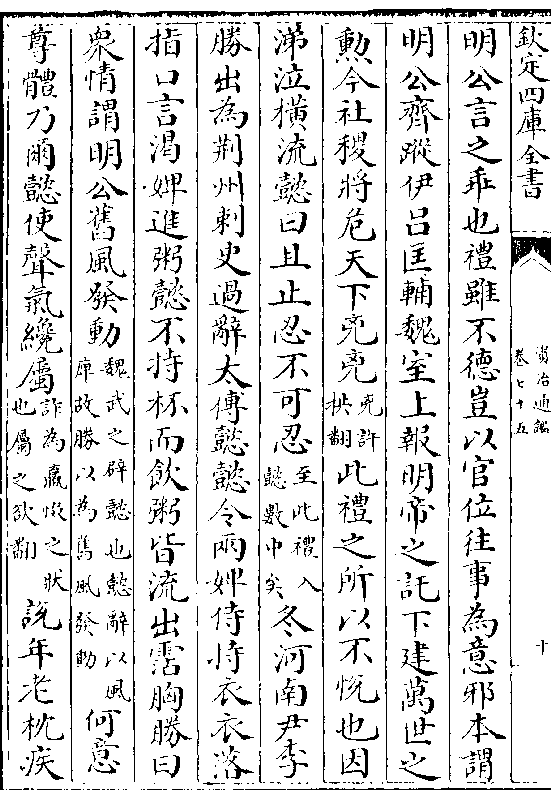 欽定四庫全書
資治通鑑
卷七十五
十
明公言之乖也禮雖不德豈以官位往事為意邪本謂
明公齊蹤伊吕匡輔魏室上報明帝之託下建萬世之
勲今社稷將危天下兇兇兇許拱翻此禮之所以不悅也因
涕泣橫流懿曰且止忍不可忍至此禮入懿數中矣冬河南尹李
勝出為荆州刺史過辭太傅懿懿令兩婢侍持衣衣落
指口言渴婢進粥懿不持杯而飲粥皆流出霑胸勝曰
衆情謂明公舊風發動魏武之辟懿也懿辭以風庳故勝以為舊風發動何意
尊體乃爾懿使聲氣纔屬詐為羸惙之狀也屬之欲翻說年老枕疾